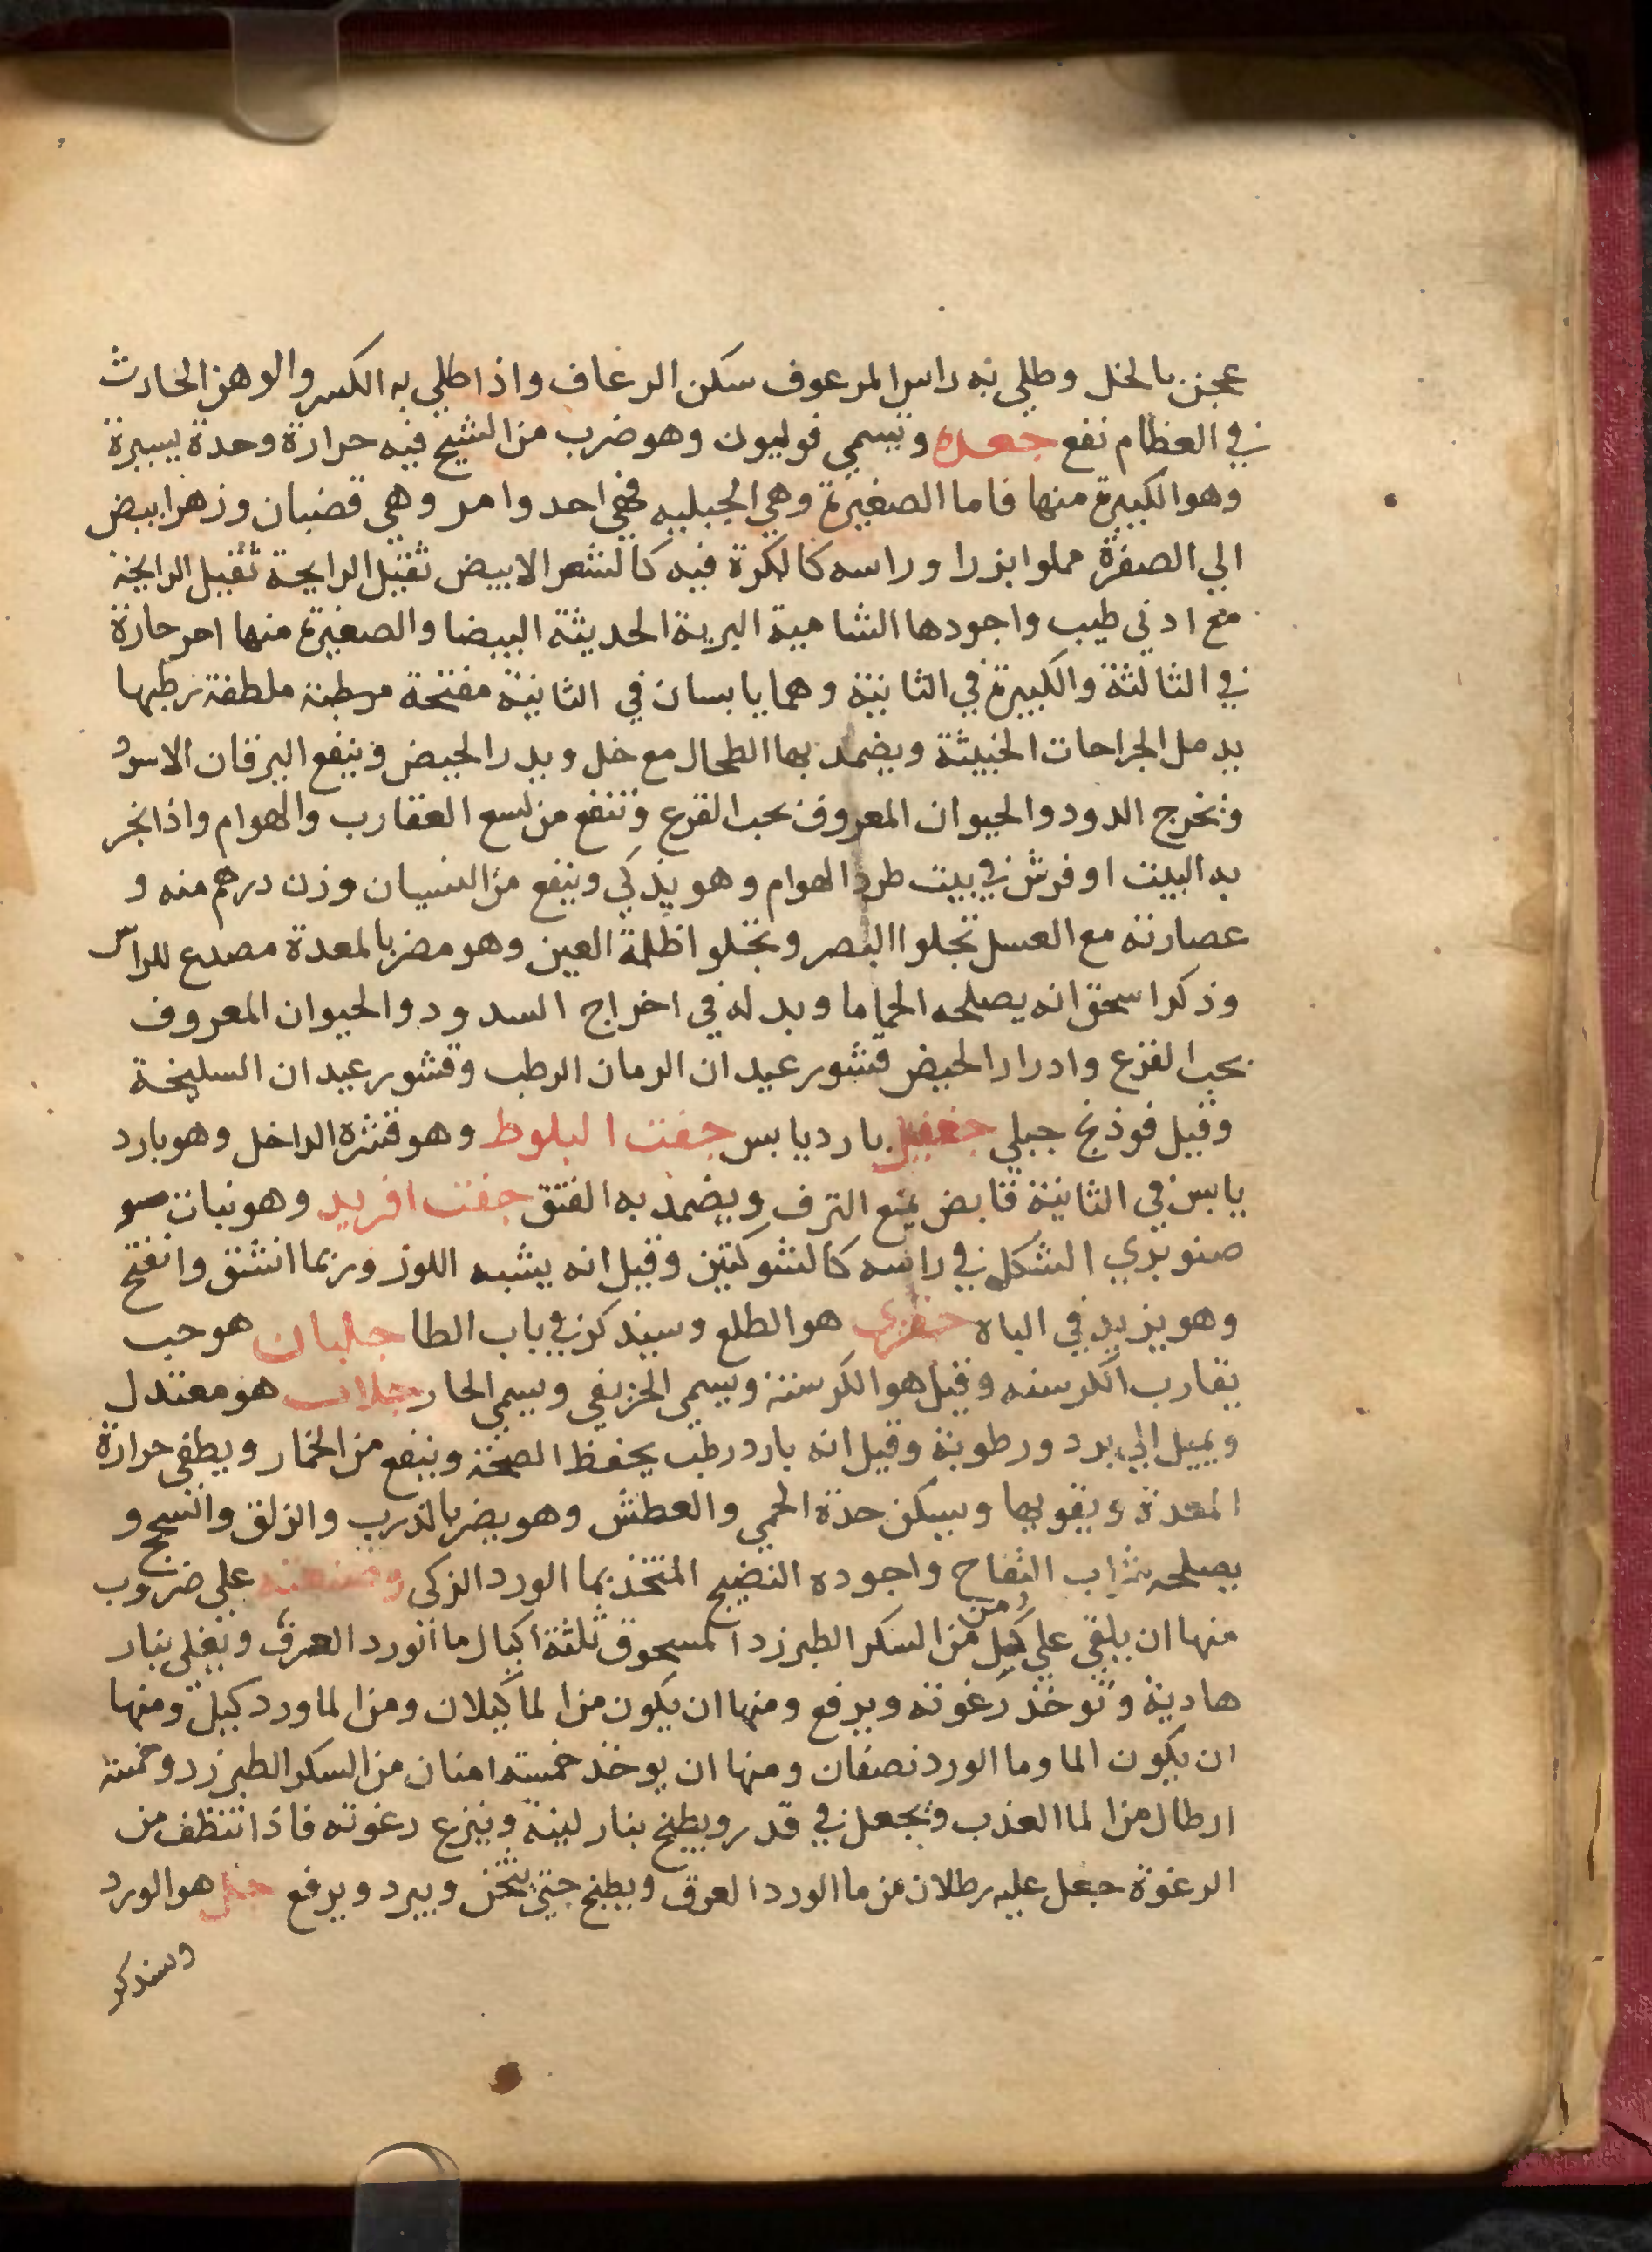 عجن بالخل وطلي به راس المرعوف سكن الرعاف واذا طلي به الكسر والوهن الحادث
في العظام نفع جعده وتسمي فوليون وهو ضرب من الشيح فيه حرارة وحدة يسيرة
وهو الكبيرة منها فاما الصغيرة وهي الجبليه فهي احد وامر وهي قضبان وزهر ابيض
الي الصفرة مملوا بزرا وراسه كالكرة فيه كالشعر الابيض ثقيل الرايحة ثقيل الرايحة
مع ادني طيب واجودها الشامية البرية الحديثة البيضا والصغيرة منها احر حارة
في الثالثة والكبيرة في الثانية وهما يابسان في الثانية مفتحة ملطفة رطبها
يدمل الجراحات الخبيثة ويضمد بها الطحال مع خل ويدر الحيض وينفع اليرقان الاسود
وتخرج الدود والحيوان المعروف بحب القرع وتنفع من لسع العقارب والهوام واذا بخر
به البيت او فرش في بيت طرد الهوام وهو يذكي وينفع من النسيان وزن درهم منه و
عصارته مع العسل تجلوا البصر وتجلوا ظلمة العين وهو مضر بالمعدة مصدع للراس
وذكر اسحق انه يصلحه الحماما وبدله في اخراج السدود والحيوان المعروف
بحب القرع وادرار الحيض قشور عيدان الرمان الرطب وقشور عيدان السليخة
وقيل فوذنج جبلي جعفيل بارد يابس جفت البلوط وهو قشره الداخل وهو بارد
يابس في الثانية قابض يمنع النزف ويضمد به الفتق جفت افريد وهو نبات
صنوبري الشكل في راسه كالشوكتين وقيل انه يشبه اللوز وربما انشق وانفتح
وهو يزيد في الباه جفري هو الطلع وسيذكر في باب الطا جلبان هو حب
يقارب الكرسنه وقيل هو الكرسنة ويسمي الخريفي ويسمي الحار جلاب هو معتدل
ويميل الي برد ورطوبة وقيل انه بارد رطب يحفظ الصحة وينفع من الخمار ويطفي حرارة
المعدة ويقويها ويسكن حدة الحمي والعطش وهو يضر بالذرب والزلق والسحج و
يصلحه شراب التفاح واجوده النضيج المتخذ بما الورد الزكي وصنعته علي ضروب
منها ان يلقي علي كيل من السكر الطبرزد المسحوق ثلثة اكيال ما الورد العرق ويغلي بنار
هادية وتوخذ رغوته ويرفع ومنها ان يكون من الما كيلان ومن الماورد كيل ومنها
ان يكون الما وما الورد نصفان ومنها ان يوخذ خمسة امنان من السكر الطبرزد وخمسة
ارطال من الما العذب ويجعل في قدر ويطبخ بنار لينة وينزع رغوته فاذا تنظف من
الرغوة جعل عليه رطلان من ما الورد العرق ويطبخ حتي يثخن ويبرد ويرفع جل هو الورد
وسنذكر